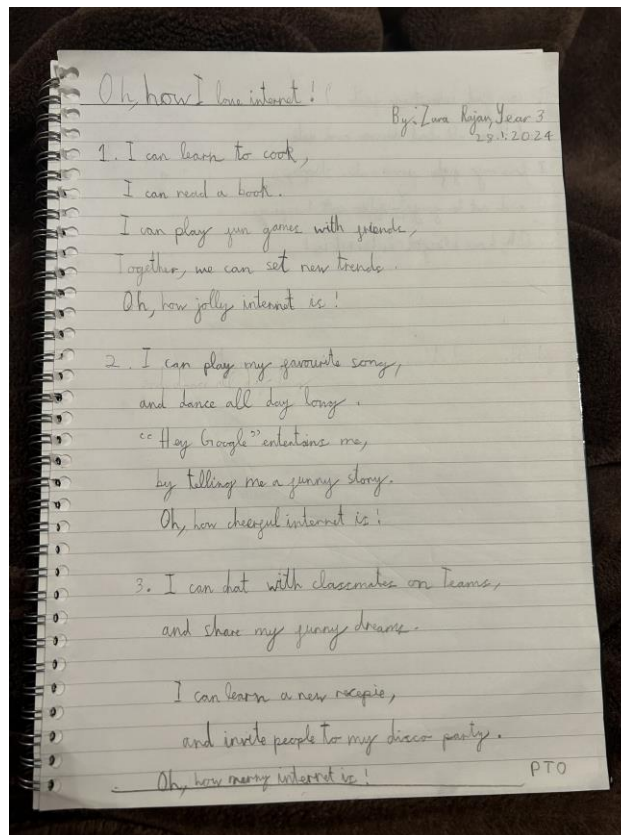 Oh, how I love internet!
By: Zara Rajan, Year 3
28.1.2024
1. I can learn to cook,
I can read a book.
I can play fun games with friends,
Together, we can set new trends.
Oh, how jolly internet is!
2. I can play my favourite song,
and dance all day long.
"Hey Google" entertains me,
by telling me a funny story.
Oh, how cheerful internet is!
3. I can chat with classmates on Teams,
and share my funny dreams.
I can learn a new recepie,
and invite people to my disco party.
Oh, how merry internet is!
PTO